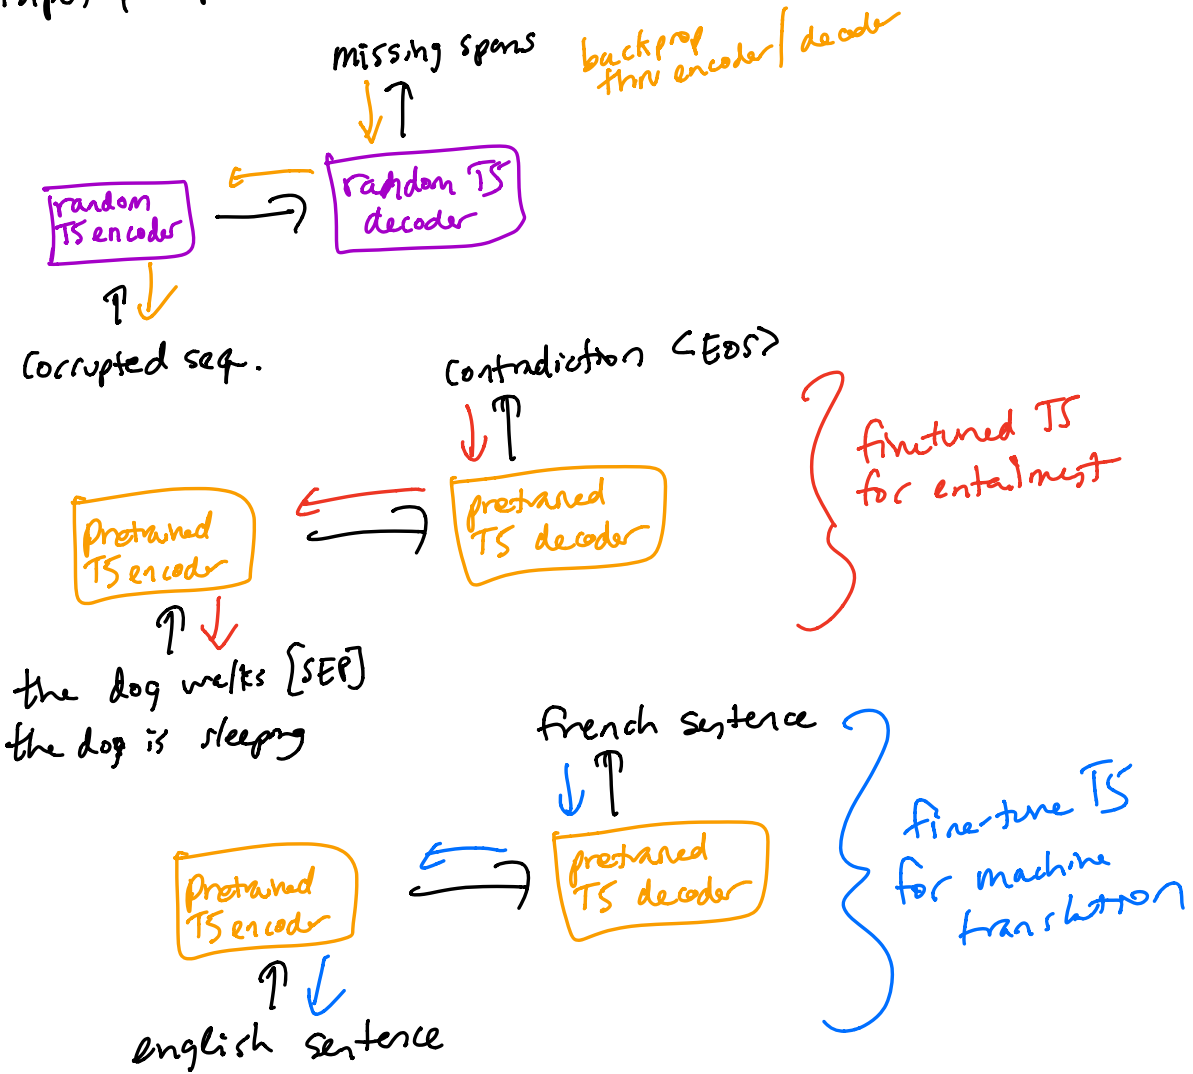 missing spans
backprop
thru encoder/decoder
random T5
decoder
random
T5 encoder
corrupted seq.
contradiction <EOS>
finetuned T5
for entailment
pretrained
T5 decoder
Pretrained
T5 encoder
the dog walks [SEP]
the dog is sleeping
french sentence
fine-tune T5
for machine
translation
pretrained
T5 decoder
Pretrained
T5 encoder
english sentence